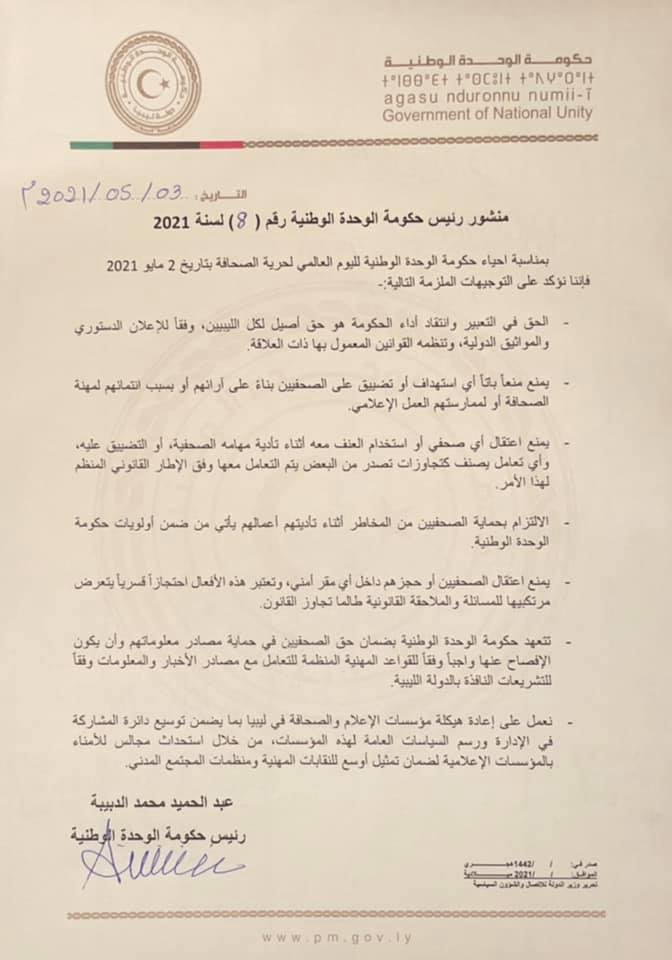 حكومة الوحدة الوطنية
agasu nduronnu numii-ĩ
Government of National Unity
دولة ليبيا
التاريخ: 2021/05/03م
منشور رئيس حكومة الوحدة الوطنية رقم ( 8 ) لسنة 2021
بمناسبة احياء حكومة الوحدة الوطنية لليوم العالمي لحرية الصحافة بتاريخ 2 مايو 2021
فإننا نؤكد على التوجيهات الملزمة التالية:-
- الحق في التعبير وانتقاد أداء الحكومة هو حق أصيل لكل الليبيين، وفقاً للإعلان الدستوري
والمواثيق الدولية، وتنظمه القوانين المعمول بها ذات العلاقة.
- يمنع منعاً باتاً أي استهداف أو تضييق على الصحفيين بناءً على آرائهم أو بسبب انتمائهم لمهنة
الصحافة أو لممارستهم العمل الإعلامي.
- يمنع اعتقال أي صحفي أو استخدام العنف معه أثناء تأدية مهامه الصحفية، أو التضييق عليه،
وأي تعامل يصنف كتجاوزات تصدر من البعض يتم التعامل معها وفق الإطار القانوني المنظم
لهذا الأمر.
- الالتزام بحماية الصحفيين من المخاطر أثناء تأديتهم أعمالهم يأتي من ضمن أولويات حكومة
الوحدة الوطنية.
- يمنع اعتقال الصحفيين أو حجزهم داخل أي مقر أمني، وتعتبر هذه الأفعال احتجازاً قسرياً يتعرض
مرتكبيها للمسائلة والملاحقة القانونية طالما تجاوز القانون.
- تتعهد حكومة الوحدة الوطنية بضمان حق الصحفيين في حماية مصادر معلوماتهم وأن يكون
الإفصاح عنها واجباً وفقاً للقواعد المهنية المنظمة للتعامل مع مصادر الأخبار والمعلومات وفقاً
للتشريعات النافذة بالدولة الليبية.
- نعمل على إعادة هيكلة مؤسسات الإعلام والصحافة في ليبيا بما يضمن توسيع دائرة المشاركة
في الإدارة ورسم السياسات العامة لهذه المؤسسات، من خلال استحداث مجالس للأمناء
بالمؤسسات الإعلامية لضمان تمثيل أوسع للنقابات المهنية ومنظمات المجتمع المدني.
عبد الحميد محمد الدبيبة
رئيس حكومة الوحدة الوطنية
صدر في: / /1442هجري
الموافق: / /2021 ميلادية
تحرير وزير الدولة للاتصال والشؤون السياسية
www.pm.gov.ly